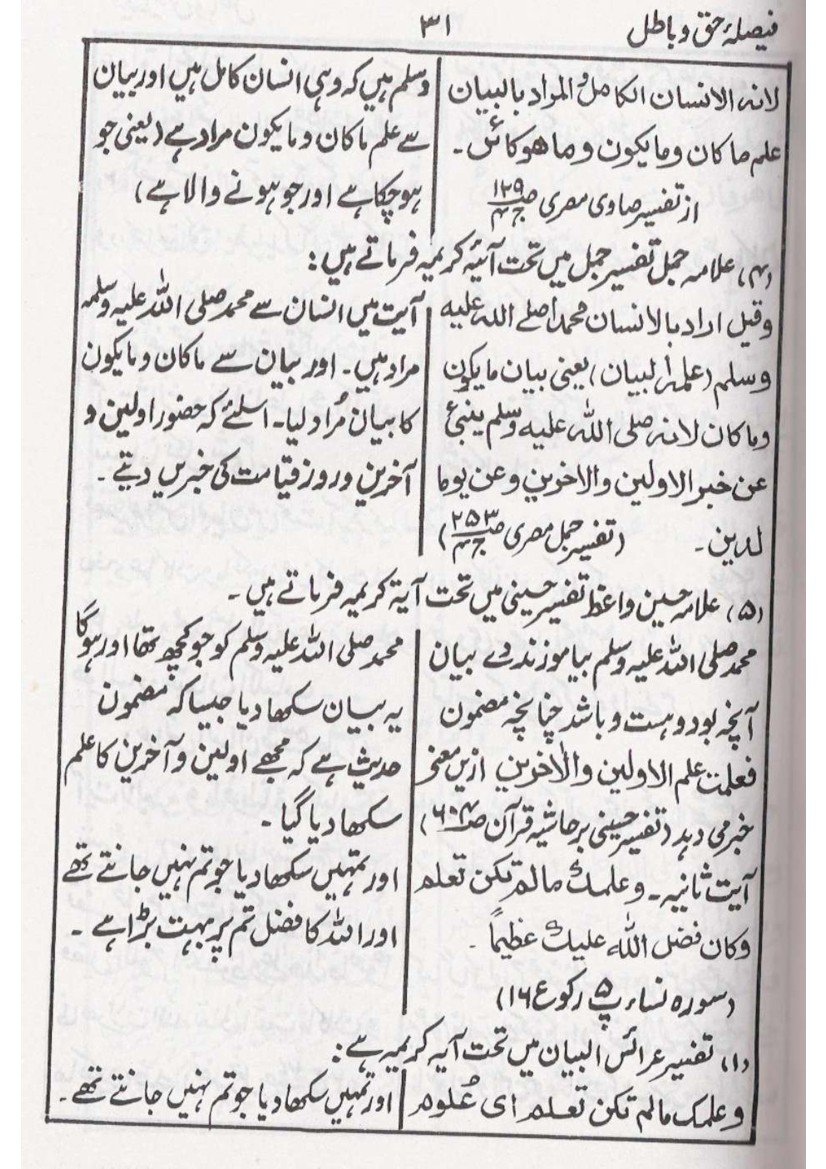 فیصلۂ حق و باطل
۳۱
لانہ الانسان الکامل المراد بالبیان
علم ما کان وما یکون وما ھو کائن۔
از تفسیر صاوی مصری ص ۱۲۹ ج ۴
وسلم ہیں کہ وہی انسان کامل ہیں اور بیان
سے علم ما کان وما یکون مراد ہے (یعنی جو
ہو چکا ہے اور جو ہونے والا ہے)
(۴) علامہ جمل تفسیر جمل میں تحت آیۂ کریمہ فرماتے ہیں:
وقیل اراد بالانسان محمدا صلے اللہ علیہ
وسلم (علمہ البیان) یعنی بیان ما یکون
وما کان لانہ صلی اللہ علیہ وسلم ینبئ
عن خبر الاولین والاخرین وعن یوما
لدین۔ (تفسیر جمل مصری ص ۲۵۳ ج ۴)
آیت میں انسان سے محمد صلی اللہ علیہ وسلم
مراد ہیں۔ اور بیان سے ما کان وما یکون
کا بیان مُراد لیا۔ اسلئے کہ حضور اولین و
آخرین و روز قیامت کی خبریں دیتے۔
(۵) علامہ حسین واعظ تفسیر حسینی میں تحت آیۃ کریمہ فرماتے ہیں۔
محمد صلی اللہ علیہ وسلم بیاموزند دے بیان
آنچہ بود وہست و باشد چنانچہ مضمون
فعلمت علم الاولین والاخرین ازیں معنے
خبر می دہد (تفسیر حسینی بر حاشیہ قرآن ص ۶۰۴)
آیت ثانیہ۔ وعلمک مالم تکن تعلم
وکان فضل اللہ علیک عظیماً۔
(سورہ نساء پ ۵ رکوع ۱۶)
محمد صلی اللہ علیہ وسلم کو جو کچھ تھا اور ہوگا
یہ بیان سکھا دیا جیسا کہ مضمون
حدیث ہے کہ مجھے اولین و آخرین کا علم
سکھا دیا گیا۔
اور تمہیں سکھا دیا جو تم نہیں جانتے تھے
اور اللہ کا فضل تم پر بہت بڑا ہے۔
(۱) تفسیر عرائس البیان میں تحت آیہ کریمہ ہے:
وعلمک مالم تکن تعلم ای عُلوم
اور تمہیں سکھا دیا جو تم نہیں جانتے تھے۔